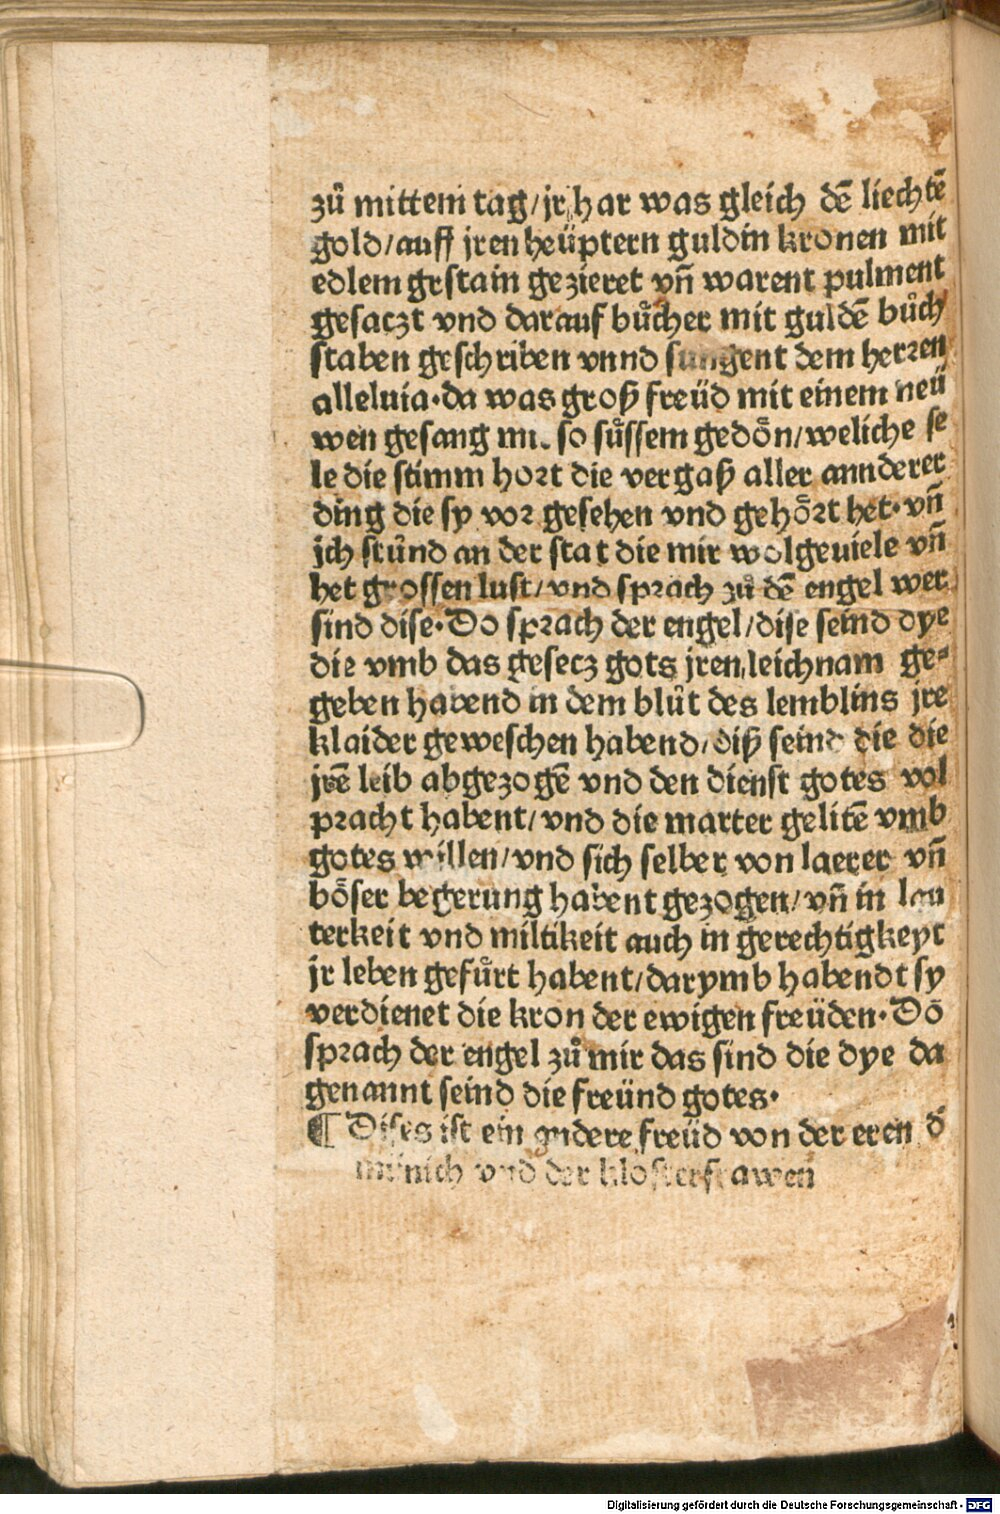 zů mittem tag/jr har was gleich dē liechtē
gold/auff jren heüptern guldin kronen mit
edlem gestain gezieret vñ warent pulment
gesaczt vnd darauf bůcher mit guldē bůch
staben geschriben vnnd sungent dem herren
alleluia·da was groß freüd mit einem neü
wen gesang mit so sůssem gedȫn/weliche se
le die stimm hort die vergaß aller annderer
ding die sy vor gesehen vnd gehȫrt het·vñ
jch stůnd an der stat die mir wolgeuiele vñ
het grossen lust/vnd sprach zů dē engel wer
sind dise·Do sprach der engel/dise seind dye
die vmb das gesecz gots jren leichnam ge⸗
geben habend in dem blůt des lemblins jre
klaider geweschen habend/diß seind die die
jrē leib abgezogē vnd den dienst gotes vol
pracht habent/vnd die marter gelitē vmb
gotes willen/vnd sich selber von laerer vñ
bȫser begerung habent gezogen/vñ in lau
terkeit vnd miltikeit auch in gerechtigkeyt
jr leben gefůrt habent/darymb habendt sy
verdienet die kron der ewigen freüden·Dō
sprach der engel zů mir das sind die dye da
genannt seind die freünd gotes·
¶ Dises ist ein andere freüd von der eren d̄
münich vnd der klosterfrawen
Digitalisierung gefördert durch die Deutsche Forschungsgemeinschaft - DFG